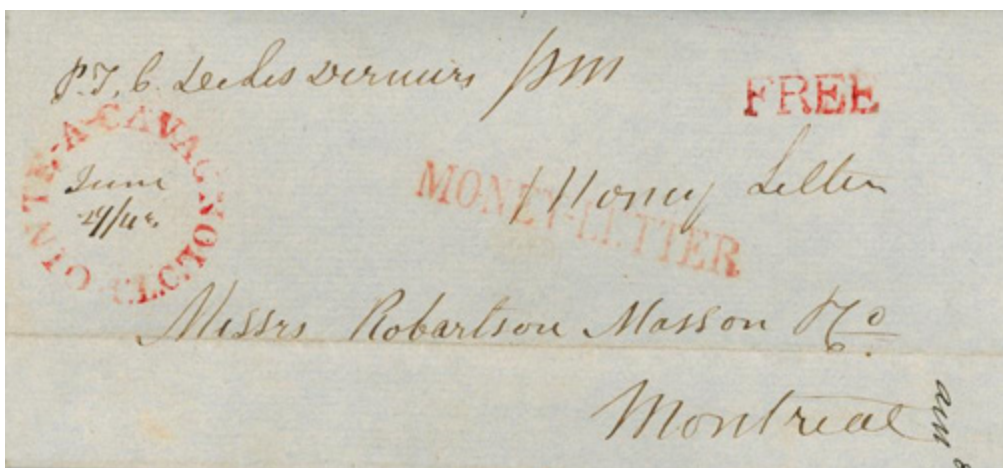 P.T. C. DeLesDerniers pm
FREE
POINTE-A-CAVAGNOL C.E.
June
29/48
MONEY-LETTER
Money Letter
Messrs Robartson Masson & Co
Montreal